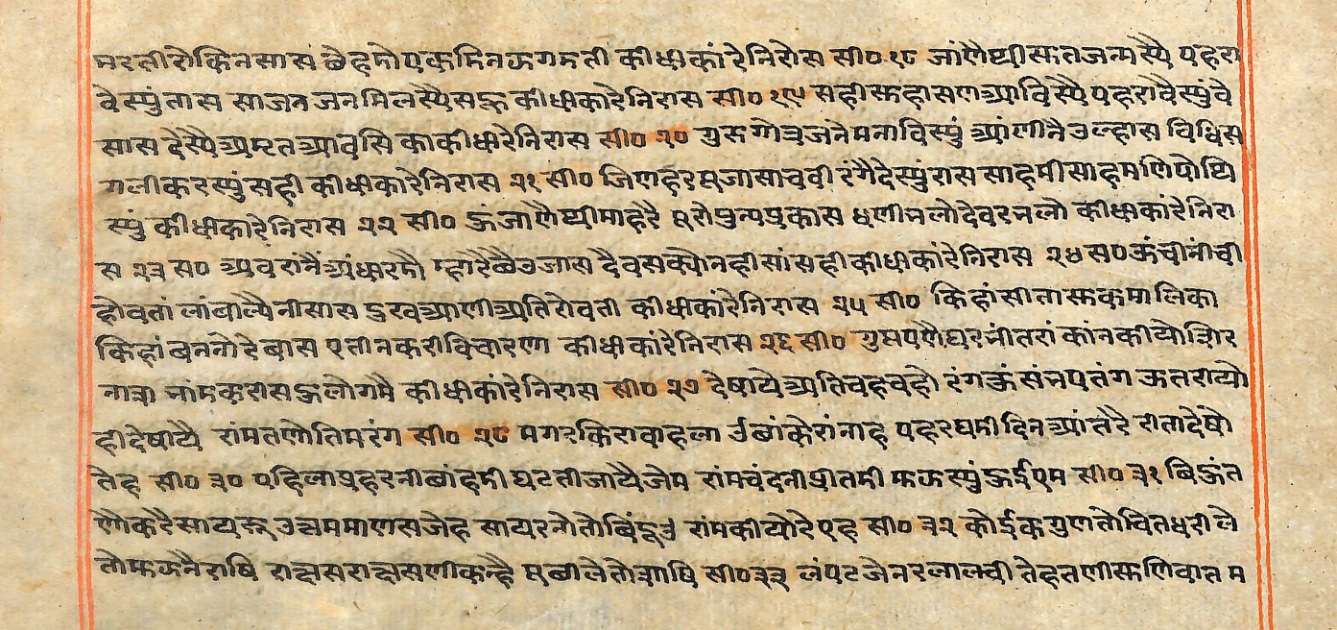 मरतीरोकिनसास छेहमोएकमिनऊगमती कीधीकांरेनिरास सी० १८ जांणैष्टीसऊतजन्मस्यै पहरा
वेस्युंतास साजनजनमिलस्यैसऊ कीधीकारेनिरास सी० १९ सहीऊहासणआविस्यै पहरावैस्युंवे
सास देस्यैअमृतआवसि काकीधीरेनिरास सी० २० गुरुगोत्रजनेमनाविस्युं आंणीनैउल्हास विधिस
गलीकरस्युंसही कीधीकारेनिरास २१ सी० जिणहरपूजासाचवी रंगैदेस्युंरास साहमीसाहमणिपोषि
स्युं कीधीकारेनिरास २२ सी० ऊंजाणैष्टीमाहरै पूरोपुन्यप्रकास धणीभलोदेवरभलो कीधीकांरेनिरा
स २३ स० अवरांनैंआंधारमौ म्हारेछैउजास दैवसक्योनहीसांसही कीधीकांरेनिरास २४ स० ऊंचीनींची
होवतां लांबाल्यैनीसास दुखआणीअतिरोवती कीधीकांरेनिरास २५ सी० किहांसीतासऊकमालिका
किहांबननोरेबास एतीनकरीविचारणा कीधीकांरेनिरास २६ सी० गुझपणैघरभींतरां कांनकीयोझोर
नारी नांमकरासऊलोगमै कीधीकांरेनिरास सी० २७ देषायेअतिचहचहो रंगऊंसंभपतंग ऊतरायो
हीदेषायै रांमतणोतिमरंग सी० २८ मगरकिरावाहला उंबांकेरांनाह पहरघमीदिनआंतरै रीतादेषो
तेह सी० ३० पहिलापुहरनीबांहमी घटतीजायैजेम रांमचंदनीप्रीतमी मऊस्युंऊईएम सी० ३१ बिऊंत
णौकरैसायरू उत्तममाणसजेह सायरनोतोबिंदूउ रांमकीयोरेएह सी० ३२ कोईकगुणतोचितधरीले
तोमऊनैराषि राक्षसराक्षसणीकन्है पूछीलेतोसाषि सी०३३ लंपटजेनरलालची तेहतणीसणिवात म